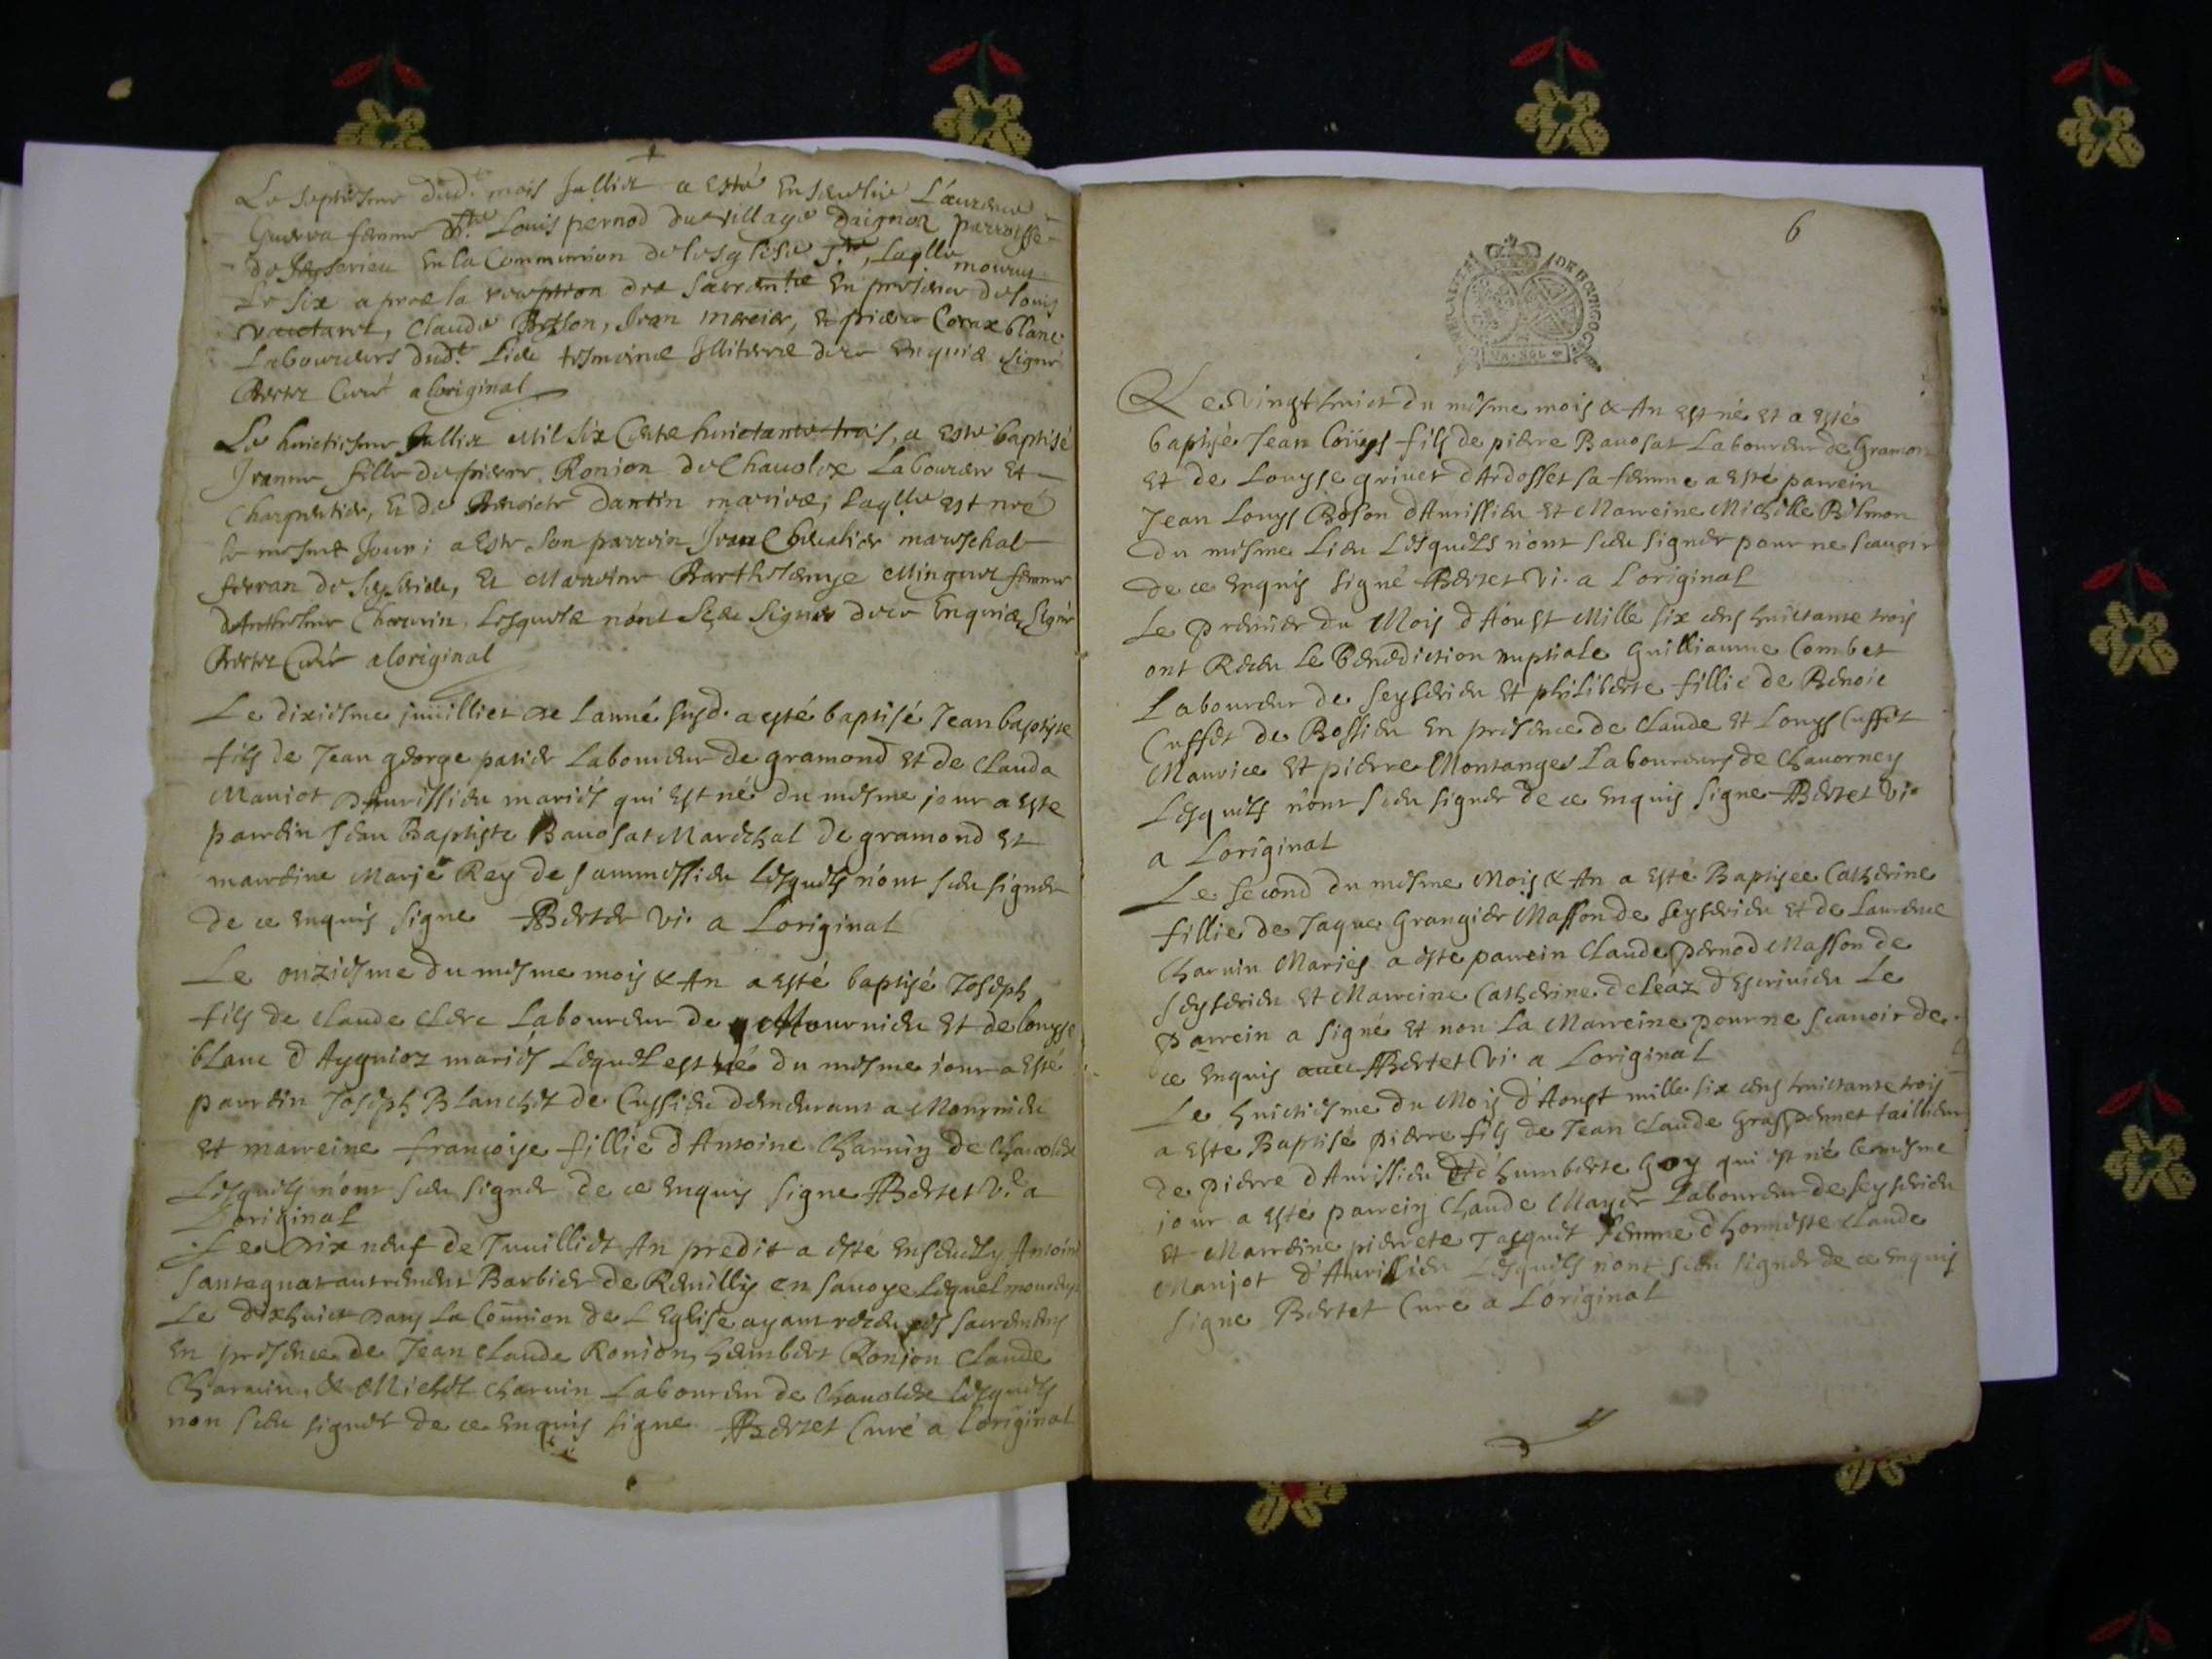 Le septiesme dud.t mois Jullier a esté Ensevelie Laurence
Guerra femme d Louis pernod du village Daignoz parroisse
de Seyserieu En la Communion de lesglise S.te, Laqlle mourut
Le six apres la reception des Sacrentz En presence de Louis
Claude Bozson, Jean mercier, Et pierre Corax blanc
Laboureurs dud.t Lieu tesmoins Illiteres de ce Enquis signé
Bertet Curé a loriginal
Le huictiesme Jullier Mil Six Cents huictante trois, a Este baptisé
Jeanne fille de pierre Ronion de Chavolex Laboureur Et
Charpentier, Et de Benoicte Dantin mariez, Laqlle est née
le mesme Jour; a Este son parrein Jean Chevalier mareschal
ferran de Seyserieu, Et Marreine Bartholemye Minguet femme
dAnthelme Charvin, Lesquels nont Sceu Signer de ce Enquis, signé
Bertet Curé a loriginal
Le dixiesme juuilliet de lanné susd. a esté baptisé Jean baptiste
fils de Jean george patier Laboureur de gramond et de Clauda
Maniot dAvrissieu mariés qui est né du mesme jour a este
parrein Jean Baptiste Bavosat Marechal de gramond et
marreine Marie Rey de sammissieu lesquels n'ont sceu signer
de ce enquis signe Bertet vi. a Loriginal
Le onziesme du mesme mois & An a esté baptisé Joseph
fils de Claude Clerc Laboureur de Mournieu et de Louyse
blanc d Aygnioz mariés Lequel est né du mesme iour a esté
parrein Joseph Blanchet de Cussieu demeurant a Mournieu
et marreine françoise fillie d Antoine Charvin de Chavolex
Lesquels n'ont sceu signer de ce enquis signe Bertet V. a
Loriginal
Le Dix neuf de Juuilliet An predit a esté ensevely Antoine
Santagnat autrement Barbier de Rumilly en savoye Lequel mourut
Le dixhuict dans La Coũnion de L Eglise ayant receu ses sacremens
en presence de Jean Claude Ronion, humbert Ronion Claude
Charvin, & Michel Charvin Laboureur de Chavolex lesquels
non sceu signer de ce enquis signe Bertet Curé a Loriginal
6
DE BOURGOGNE
VN SOL
Le vingt huict du mesme mois & An est né et a esté
baptisé Jean Louys fils de pierre Bavosat Laboureur de Gramon
et de Louyse grivet dArdosset sa femme a esté parrein
Jean Louys Boson dAvrissieu et Marreine Michelle Bilmon
du mesme Lieu Lesquels n'ont sceu signer pour ne scavoir
de ce enquis signé Bertet vi. a Loriginal
Le premier du Mois dAoust Mille six cens huictante trois
ont Receu Le Benediction nuptiale Guilliaume Combet
Laboureur de Seyserieu et philiberte fillie de Benoic
Cusset de Bossieu en presence de Claude et Louys Cusset
Maurice et pierre Montanges Laboureurs de Chavorney
Lesquels n'ont sceu signer de ce enquis signe Bertet Vi.
a Loriginal
Le second du mesme Mois & An a esté Baptisée Catherine
fillie de Jaque Grangier Masson de Seyserieu et de Laurence
Charvin Mariés a esté parrein Claude Pernod Masson de
Seyserieu et Marreine Catherine deleaz d'Escrivieu Le
Parrein a signé et non La Marreine pour ne scavoir de
ce enquis avec Bertet Vi. a Loriginal
Le huictiesme du Mois dAoust mille six cens huictante trois
a este Baptisé pierre fils de Jean Claude Graspernet taillieur
de pierre d Avrissieu et d humberte Goy qui est né le mesme
jour a esté parrein Claude Mayer Laboureur de Seyserieu
et Marreine pierrete Jasquet femme d honneste Claude
Manjot d'Avrissieu Lesquels n'ont sceu signer de ce enquis
signe Bertet Curé a Loriginal